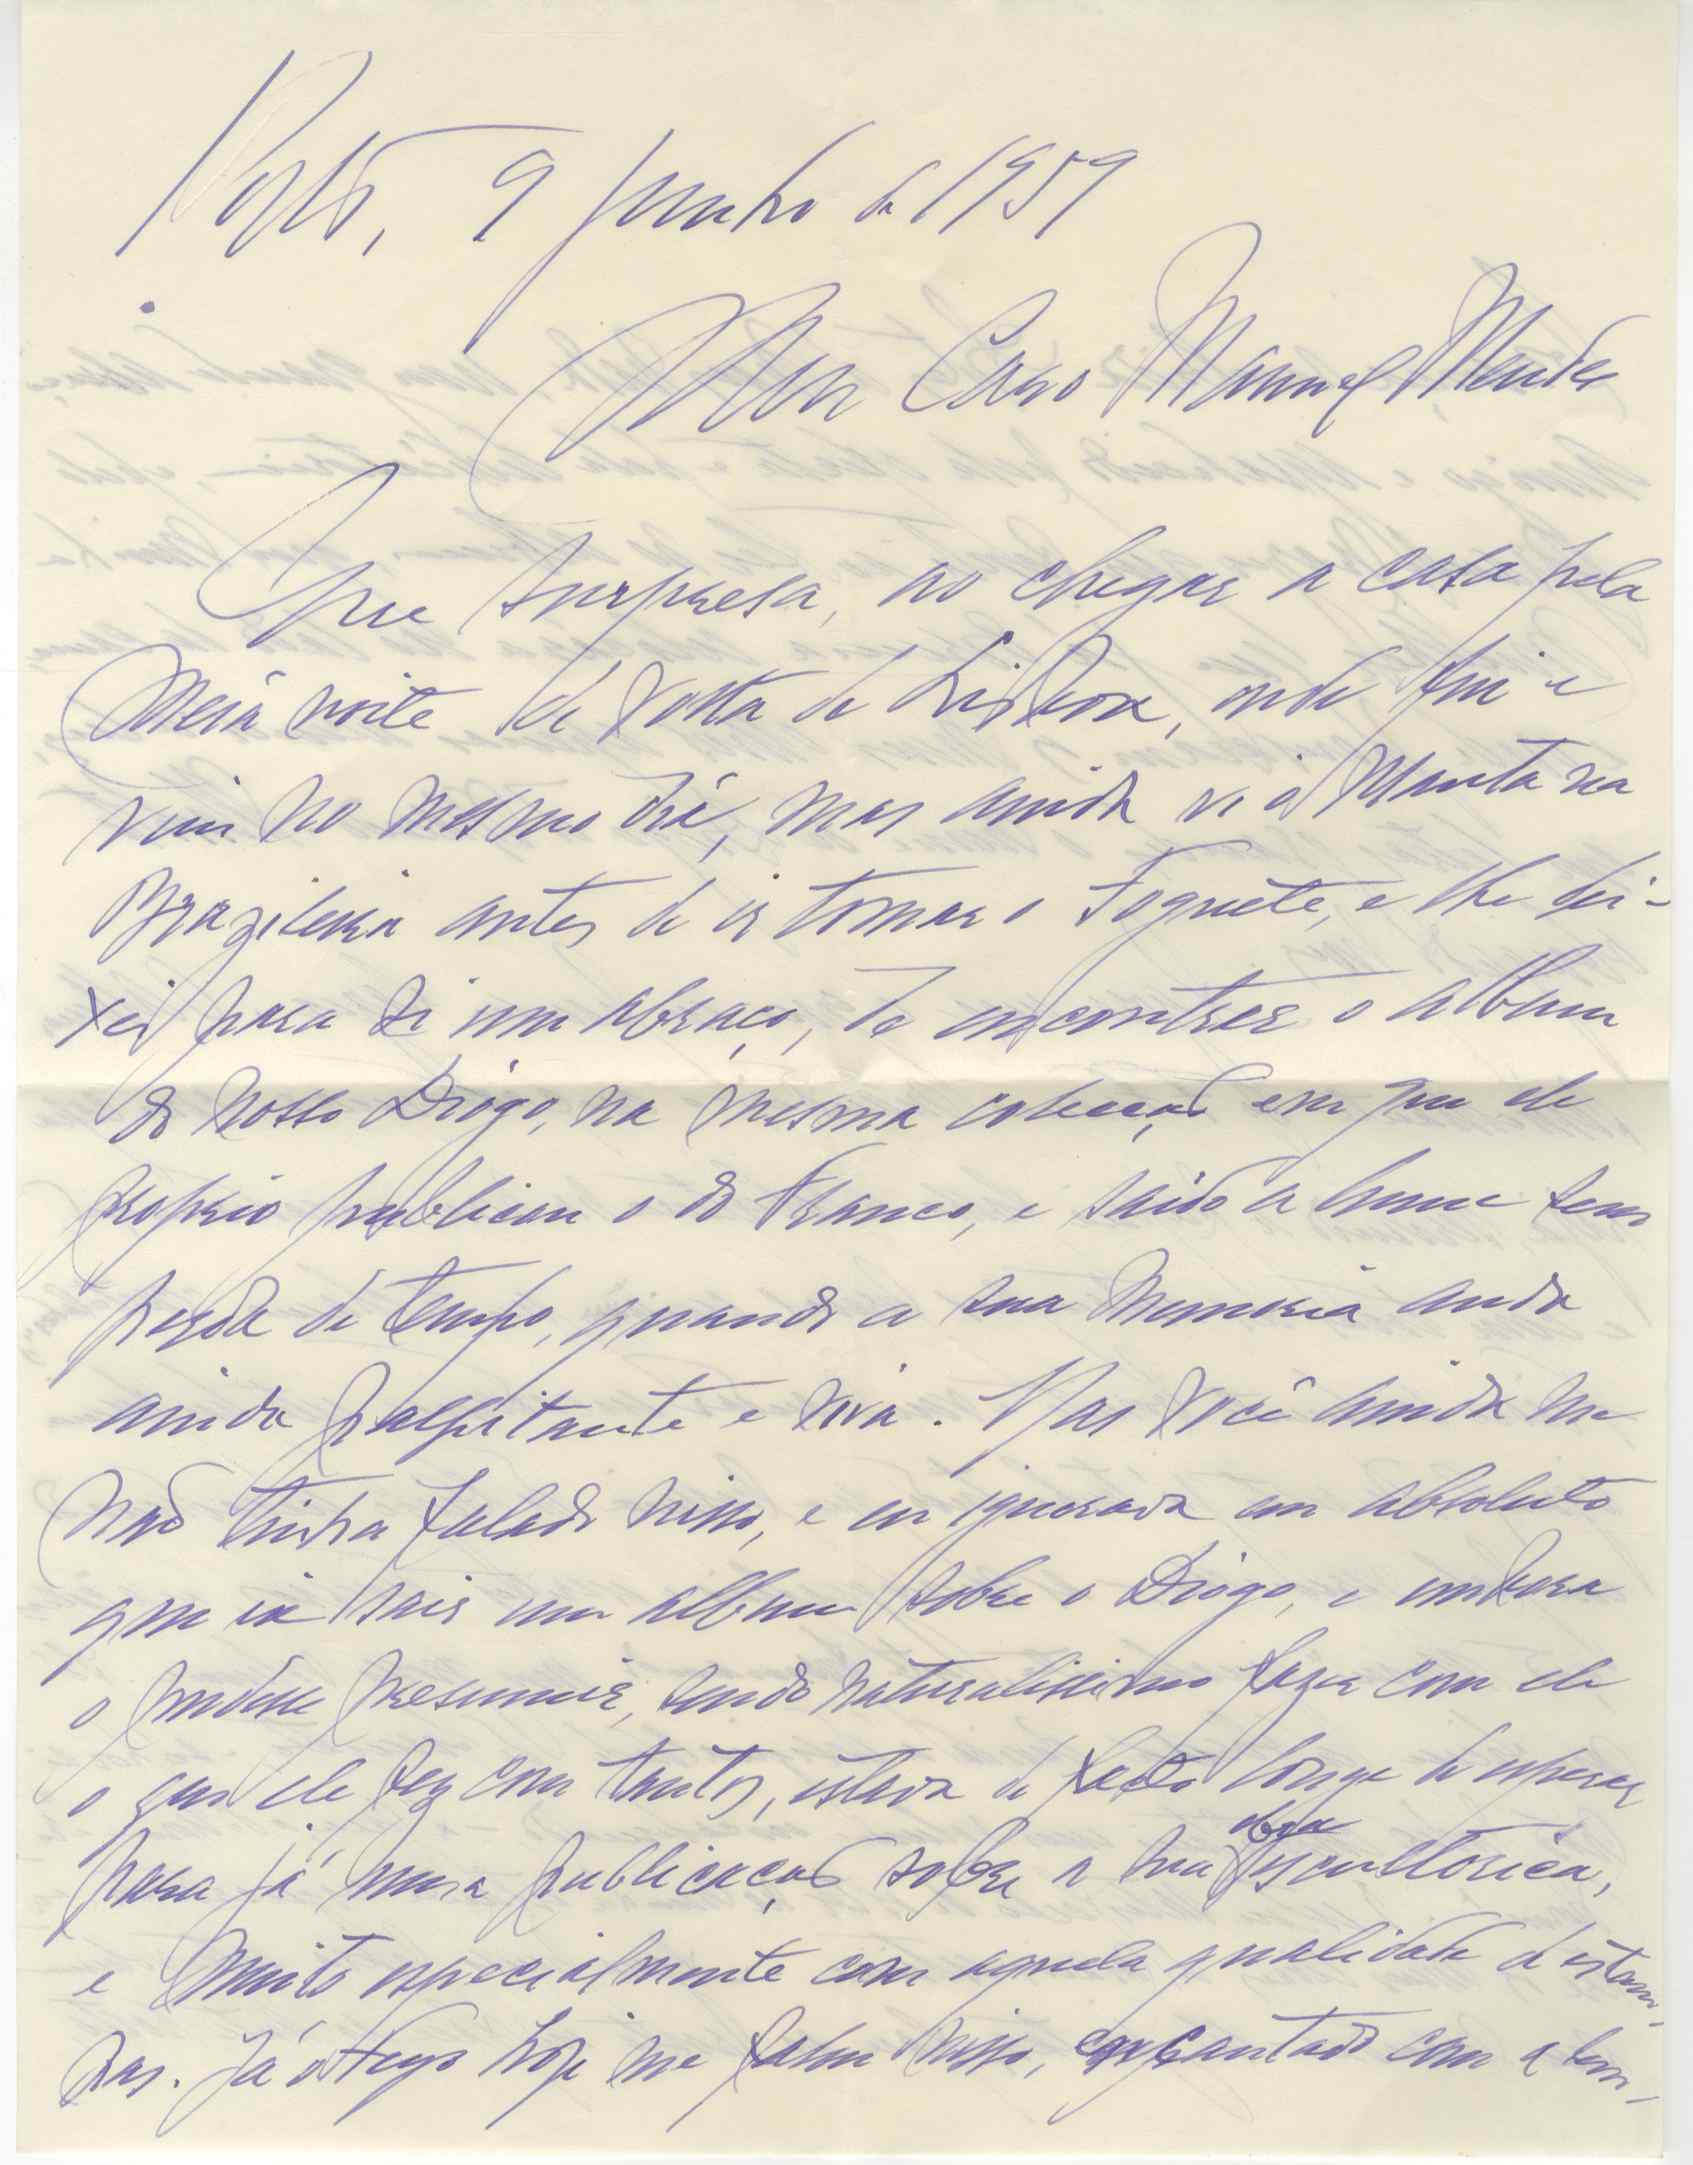 Porto, 9 Junho de 1959
Meu Caro Manuel Mendes
Que surpresa, ao chegar a casa pela
meia noite de volta de Lisboa, onde fui e
vim no mesmo dia, mas ainda vi o Manta na
Brazileira antes de ir tomar o Foguete, e lhe dei-
xei para si um abraço, de encontrar o album
do nosso Diogo, na mesma colecção em que ele
proprio publicou o do Franco, e saido a lume sem
perda de tempo, quando a sua memoria anda
ainda palpitante e viva. Mas você ainda me
não tinha falado nisso, e eu ignorava em absoluto
que ia sair um album sobre o Diogo, e embora
o pudesse presumir, sendo naturalissimo fazer com ele
o que ele fez com tantos, estava de facto longe de esperar
para já numa publicação sobre a sua obra escultorica,
e muito especialmente com aquela qualidade de estam-
pas. Já o hoje me falou nisso, encantado com a lem-